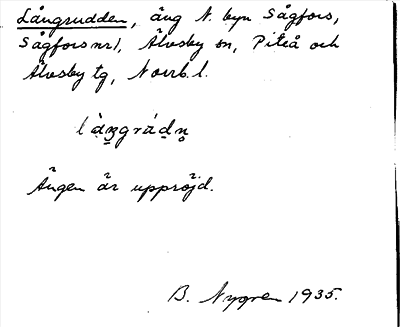 Långrudden, äng N. byn Sågfors,
Sågfors nr 1, Älvsby sn, Piteå och
Älvsby tg, Norrb. l.
Ängen är uppröjd.
B. Nygren 1935.